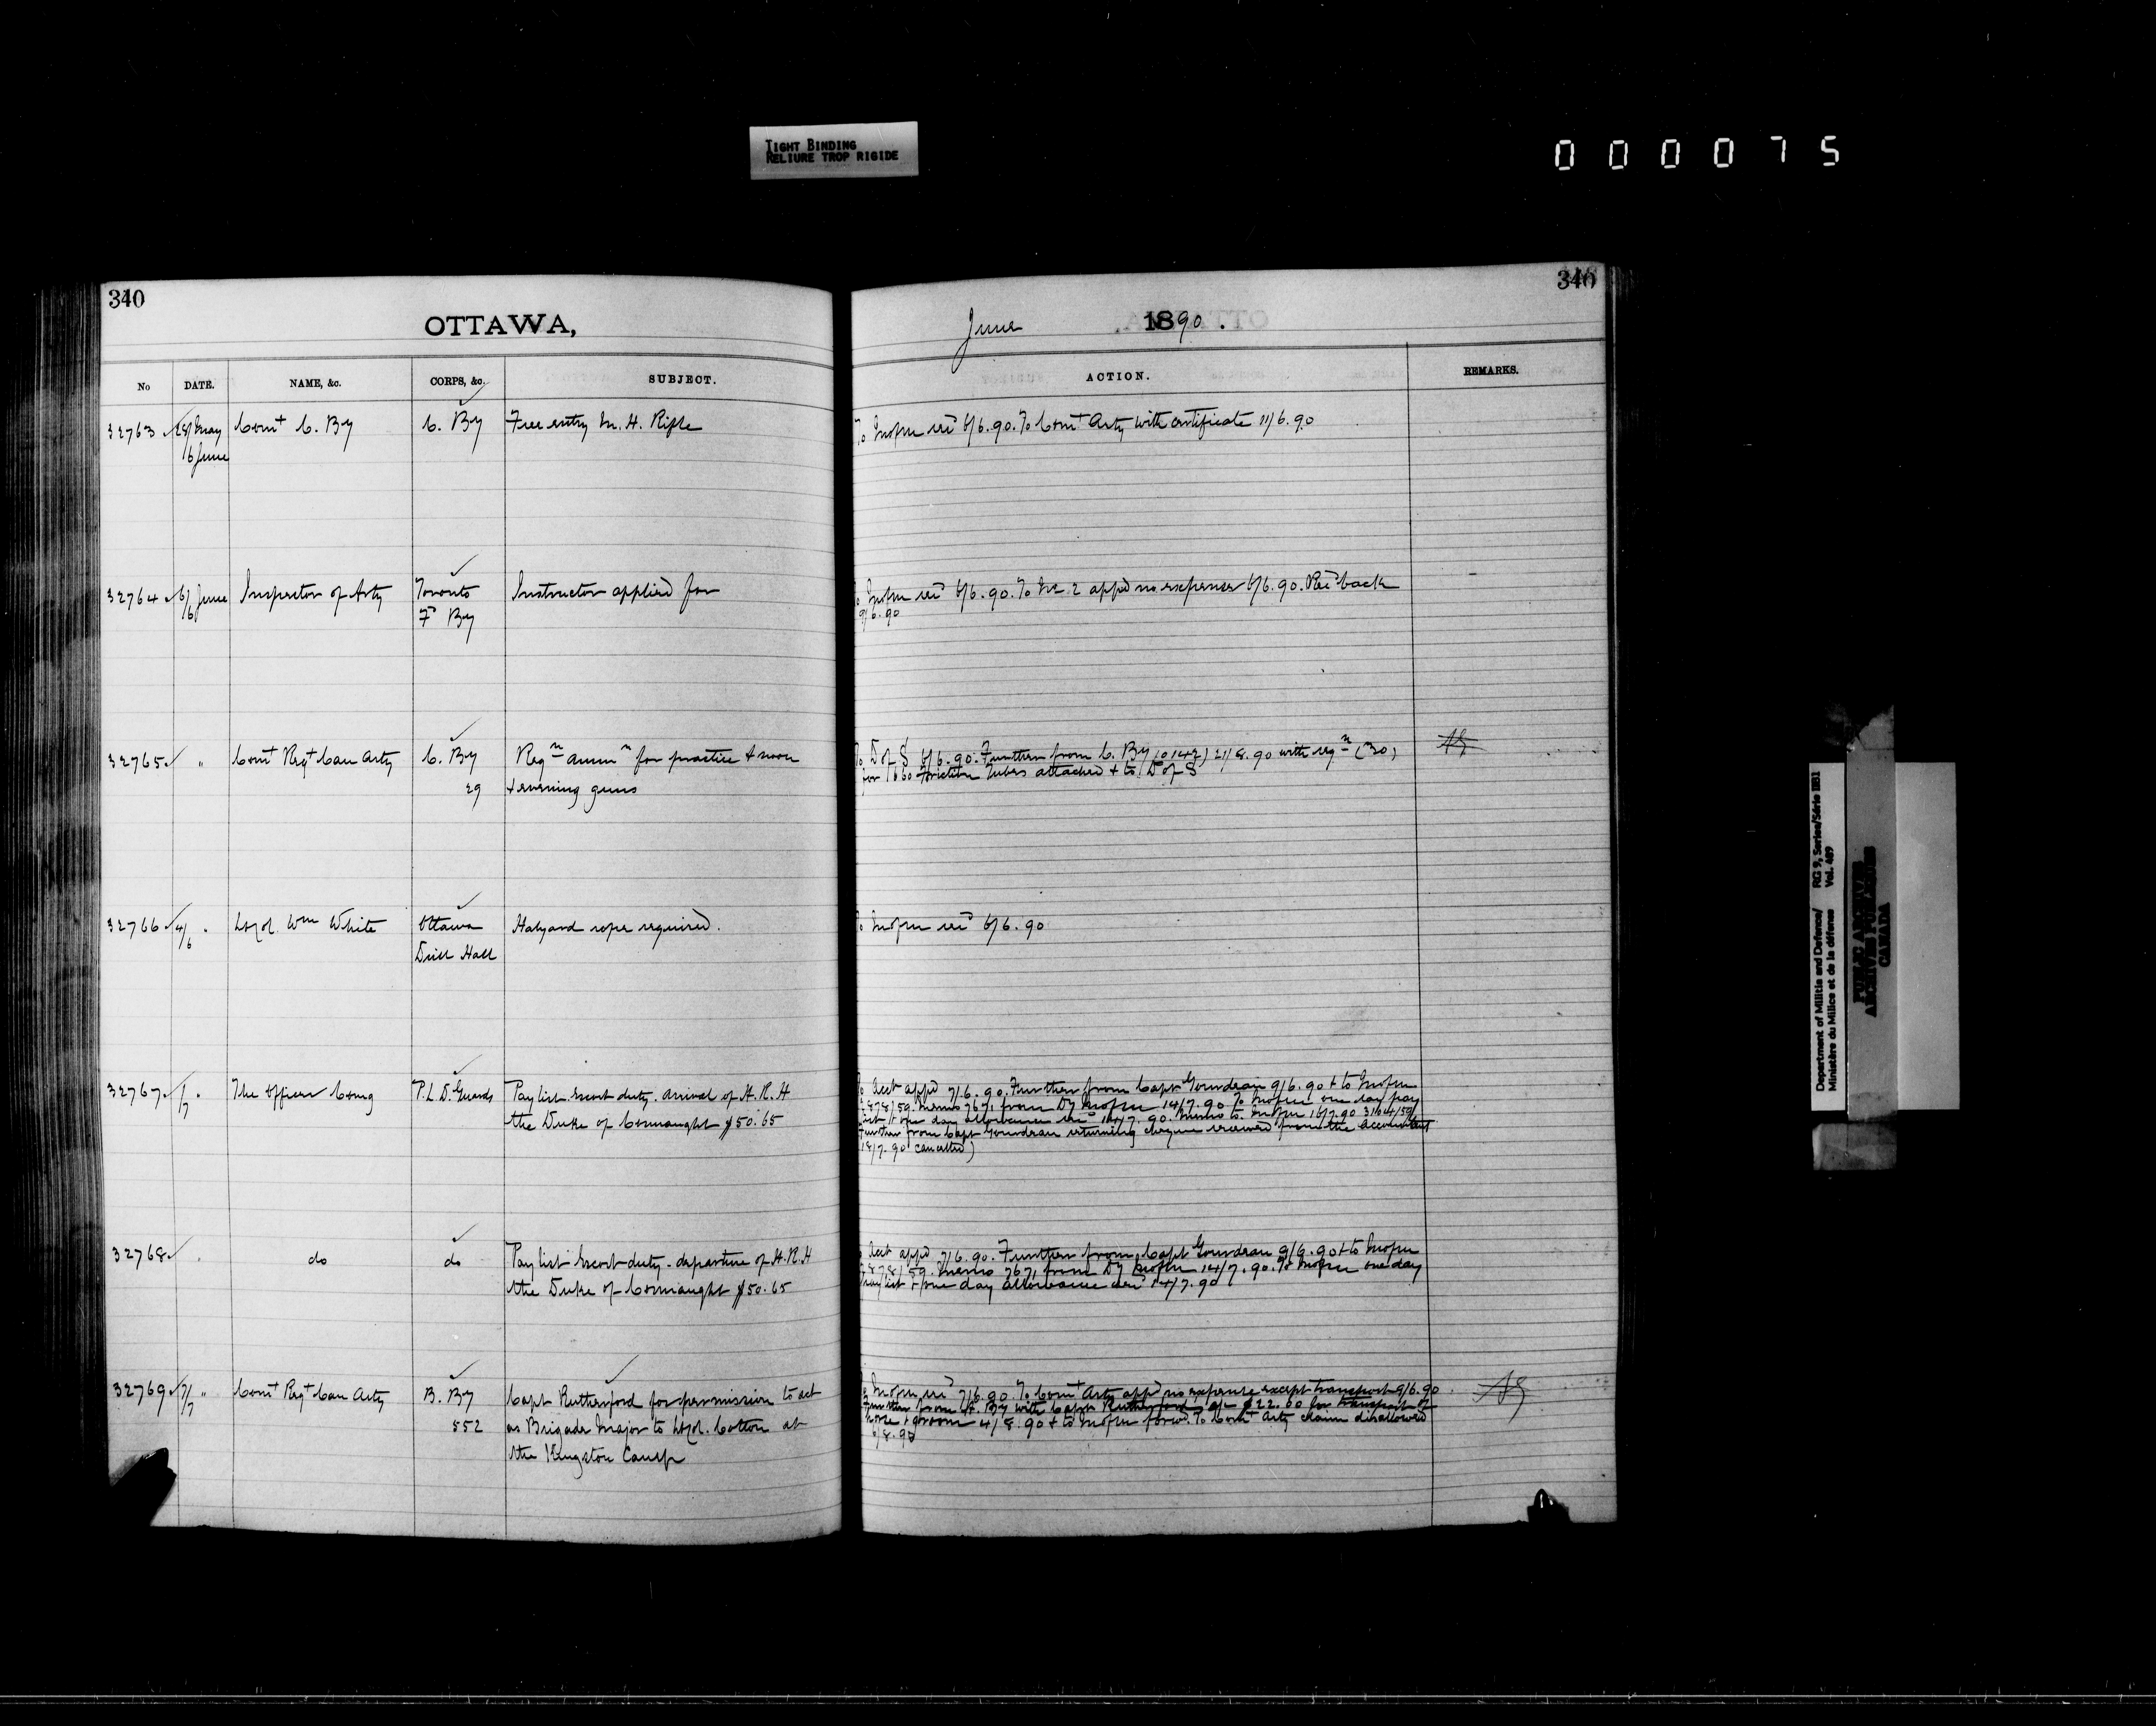 TIGHT BINDING
RELIURE TROP RIGIDE
000075
340
OTTAWA,
No DATE. NAME, &c. CORPS, &c. SUBJECT.
32763 28/May Comt C. By C. By Free entry M. H. Rifle
6 June
32764 6/6 June Inspector of Arty Toronto Instructor applied for
Fd By
32765 " Comt Regt Can Arty C. By Reqn ammn for practice & noon
29 & evening guns
32766 4/6 " Lt Col. Wm White Ottawa Halyard rope required.
Drill Hall
32767 1/7 " The Officer Comg P.L.D. Guards Paylist Escort duty. arrival of H.R.H
the Duke of Connaught $50.65
32768 " do do Paylist Escort duty - departure of H.R.H
the Duke of Connaught $50.65
32769 7/7 " Comt Regt Can Arty B. By Capt Rutherford for permission to act
552 as Brigade Major to Lt Col. Cotton at
the Kingston Camp
340
June 1890.
ACTION. REMARKS.
To recd 6/6.90. To Comt Arty with certificate 11/6.90
recd 6/6.90. To appd no expenses 6/6.90. Recd back
9/6.90
To D of S 6/6.90. Further from C. By 21/8.90 with reqn (30)
for Friction Tubes attached & to D of S
recd 6/6.90
To Acct appd 7/6.90. Further from Capt Gourdeau 9/6.90 & to
2878/59. Memo 7671 from Dy 14/7.90 To one day pay
list & one day allowance recd 14/7.90. Memo to 16/7.90 3104/59
Further from Capt Gourdeau returning cheque received from the Accountant
18/7.90 cancelled)
To Acct appd 7/6.90. Further from Capt Gourdeau 9/6.90 & to
2878/59. Memo 7671 from Dy 14/7.90. To one day
pay list & one day allowance recd 14/7.90
recd 7/6.90 To Comt Arty appd no expense except transport 9/6.90
Further from By with Capt Rutherford $22.00 for transport of
horse & groom 4/8.90 & to forwd. To Comt Arty claim disallowed
6/8.90
Department of Militia and Defence/ RG 9, Series/Série IIB1
Ministère du Milice et de la défence Vol. 489
PUBLIC ARCHIVES
ARCHIVES PUBLIQUES
CANADA